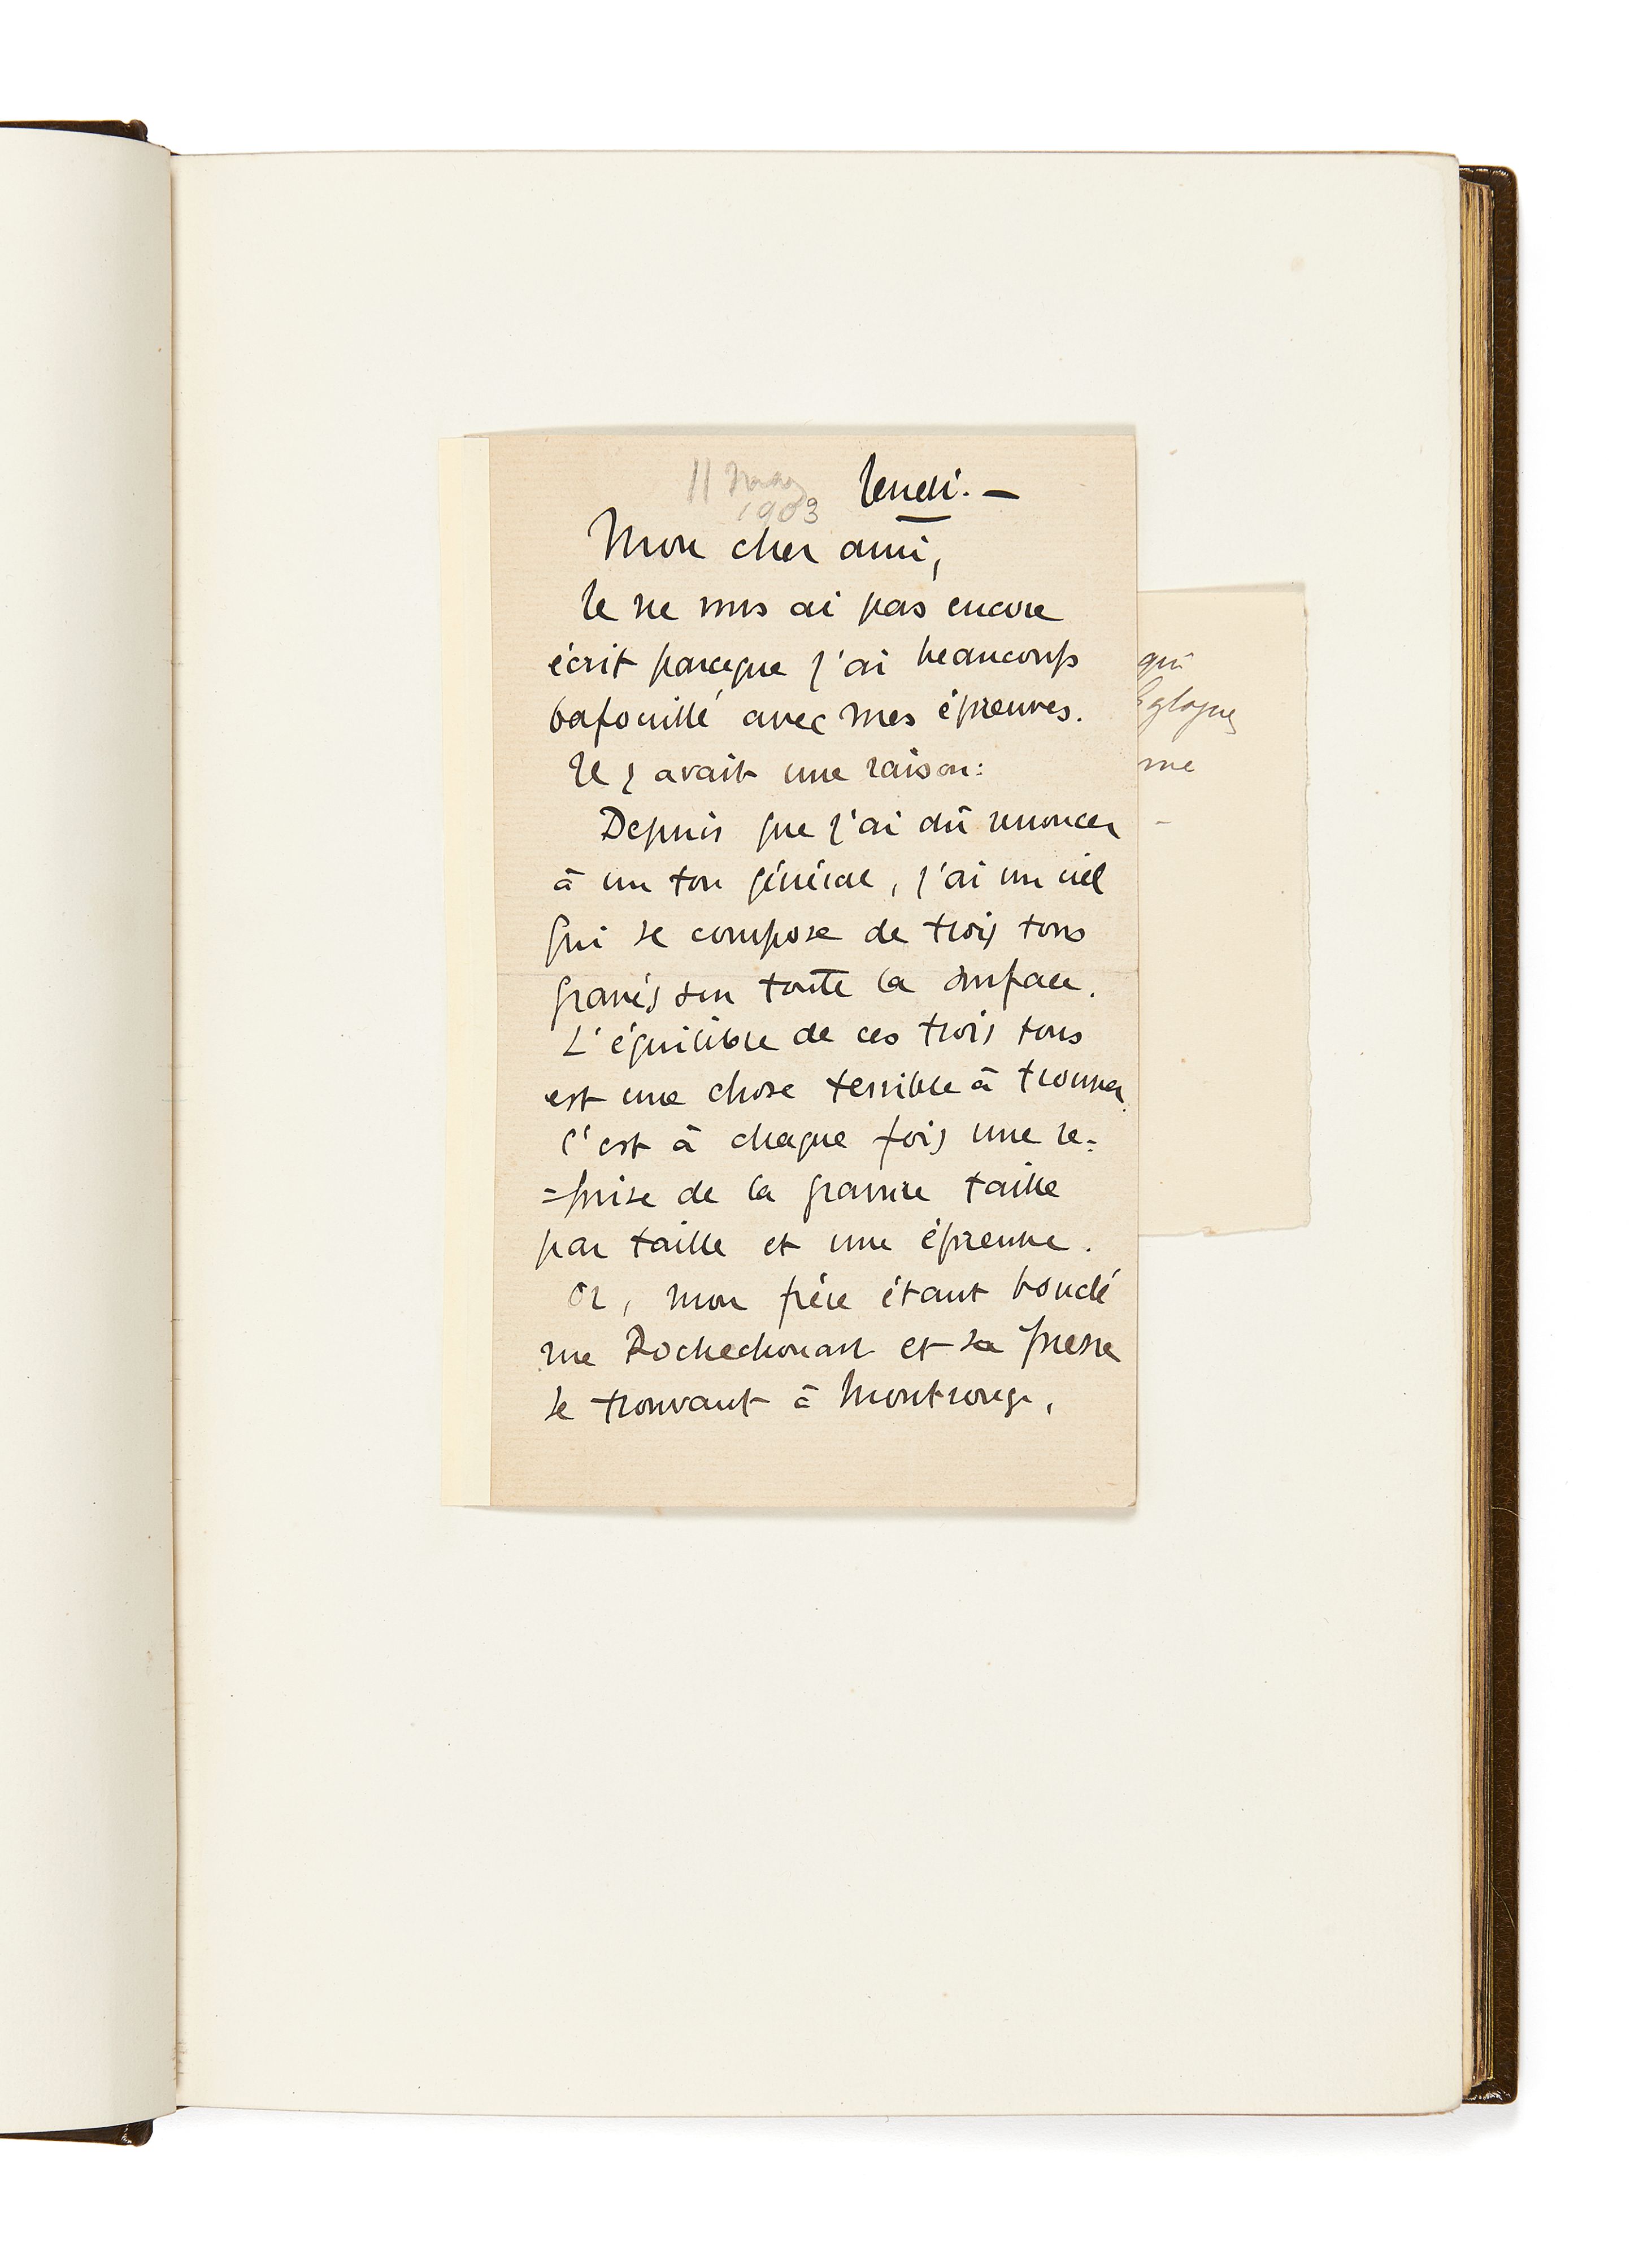 11
1903
Jeudi. —
Mon cher ami,
Je ne vous ai pas encore
écrit parceque j'ai beaucoup
bafouillé avec mes épreuves.
Il y avait une raison:
Depuis que j'ai dû renoncer
à un ton général, j'ai un ciel
qui se compose de trois tons
gravés sur toute la surface.
L'équilibre de ces trois tons
est une chose terrible à trouver.
C'est à chaque fois une re=
=prise de la gravure taille
par taille et une épreuve.
Or, mon frère étant bouclé
rue Rochechouart et sa presse
se trouvant à Montrouge,
qui
Eglogues
me
-